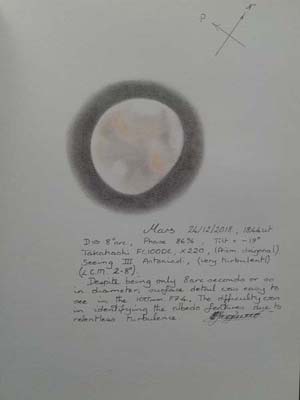 P N
Mars 24/12/2018, 1864ut
Dia 8"arc, Phase 86%. Tilt = -19°
Takahashi FC100DC, x220, (Prism diagonal)
Seeing III Antoniadi, (very turbulent)
(LCM 2.8°)
Despite being only 8arc seconds or so
in diameter, surface detail was easy to
see in the 100mm F7.4. The difficulty was
in identifying the albedo features due to
relentless turbulence.